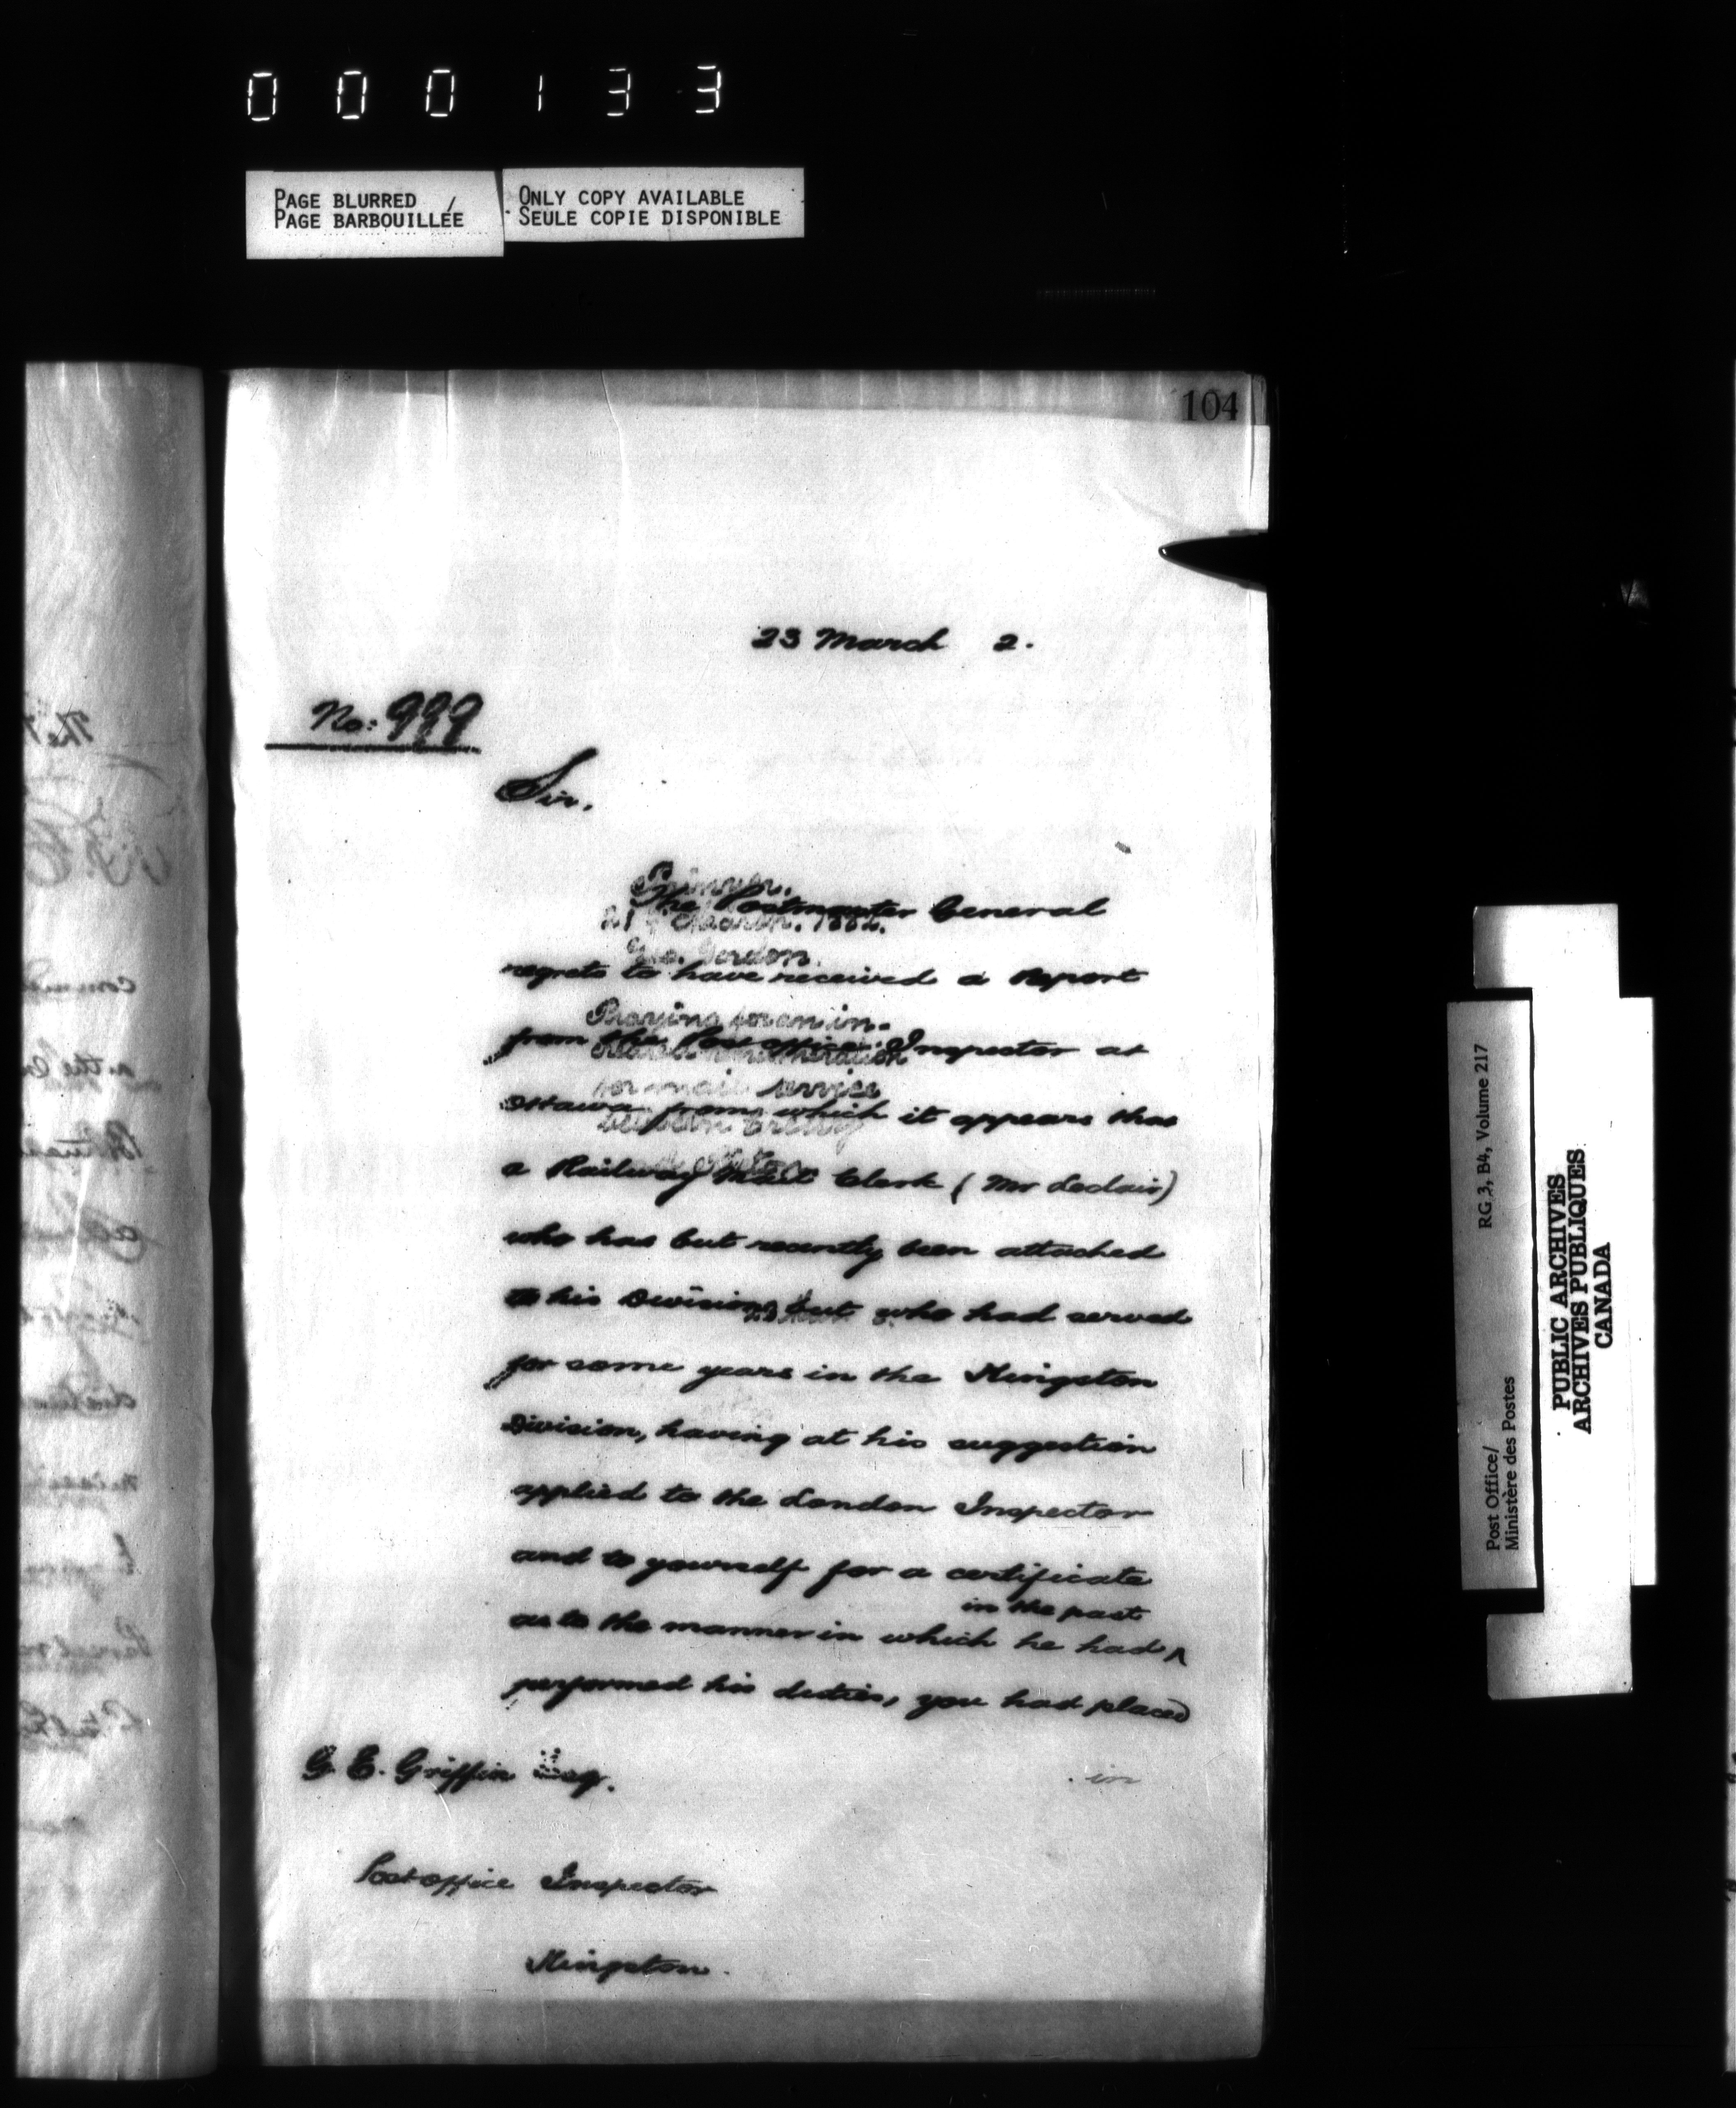 000133
PAGE BLURRED /
PAGE BARBOUILLÉE
ONLY COPY AVAILABLE
SEULE COPIE DISPONIBLE
104
23 March 2.
No: 999
Sir,
The Postmaster General
regrets to have received a report
from the Post office Inspector at
Ottawa from which it appears that
a Railway Mail Clerk (Mr Leclair)
who has but recently been attached
to his Division but who had served
for some years in the Kingston
Division, having at his suggestion
applied to the London Inspector
and to yourself for a certificate
in the past
as to the manner in which he had ^
performed his duties, you had placed
in
G. E. Griffin Esq.
Post office Inspector
Kingston.
21st March. 1882.
Geo. Gordon.
Praying for an in-
creased remuneration
for mail service
between
RG 3, B4, Volume 217
Post Office/
Ministère des Postes
PUBLIC ARCHIVES
ARCHIVES PUBLIQUES
CANADA